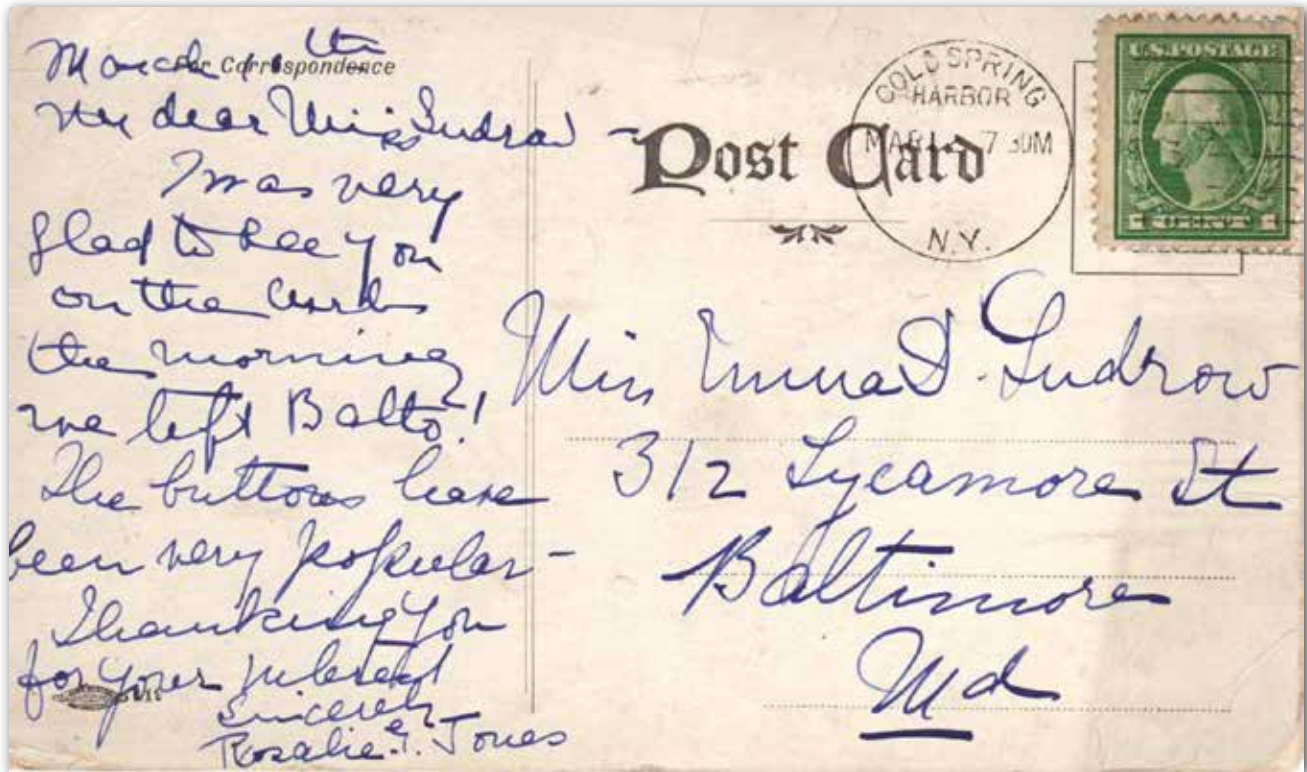 For Correspondence
March
My dear Miss Ludrow -
I was very
glad to see you
on the curb
the morning
we left Balto!
The buttons have
been very popular -
Thanking you
for your interest
Sincerely
Rosalie G. Jones
Post Card
COLD SPRING
HARBOR
MAR 7 30M
N.Y.
U.S. POSTAGE
Miss Emma D. Ludrow
312 Sycamore St
Baltimore
Md